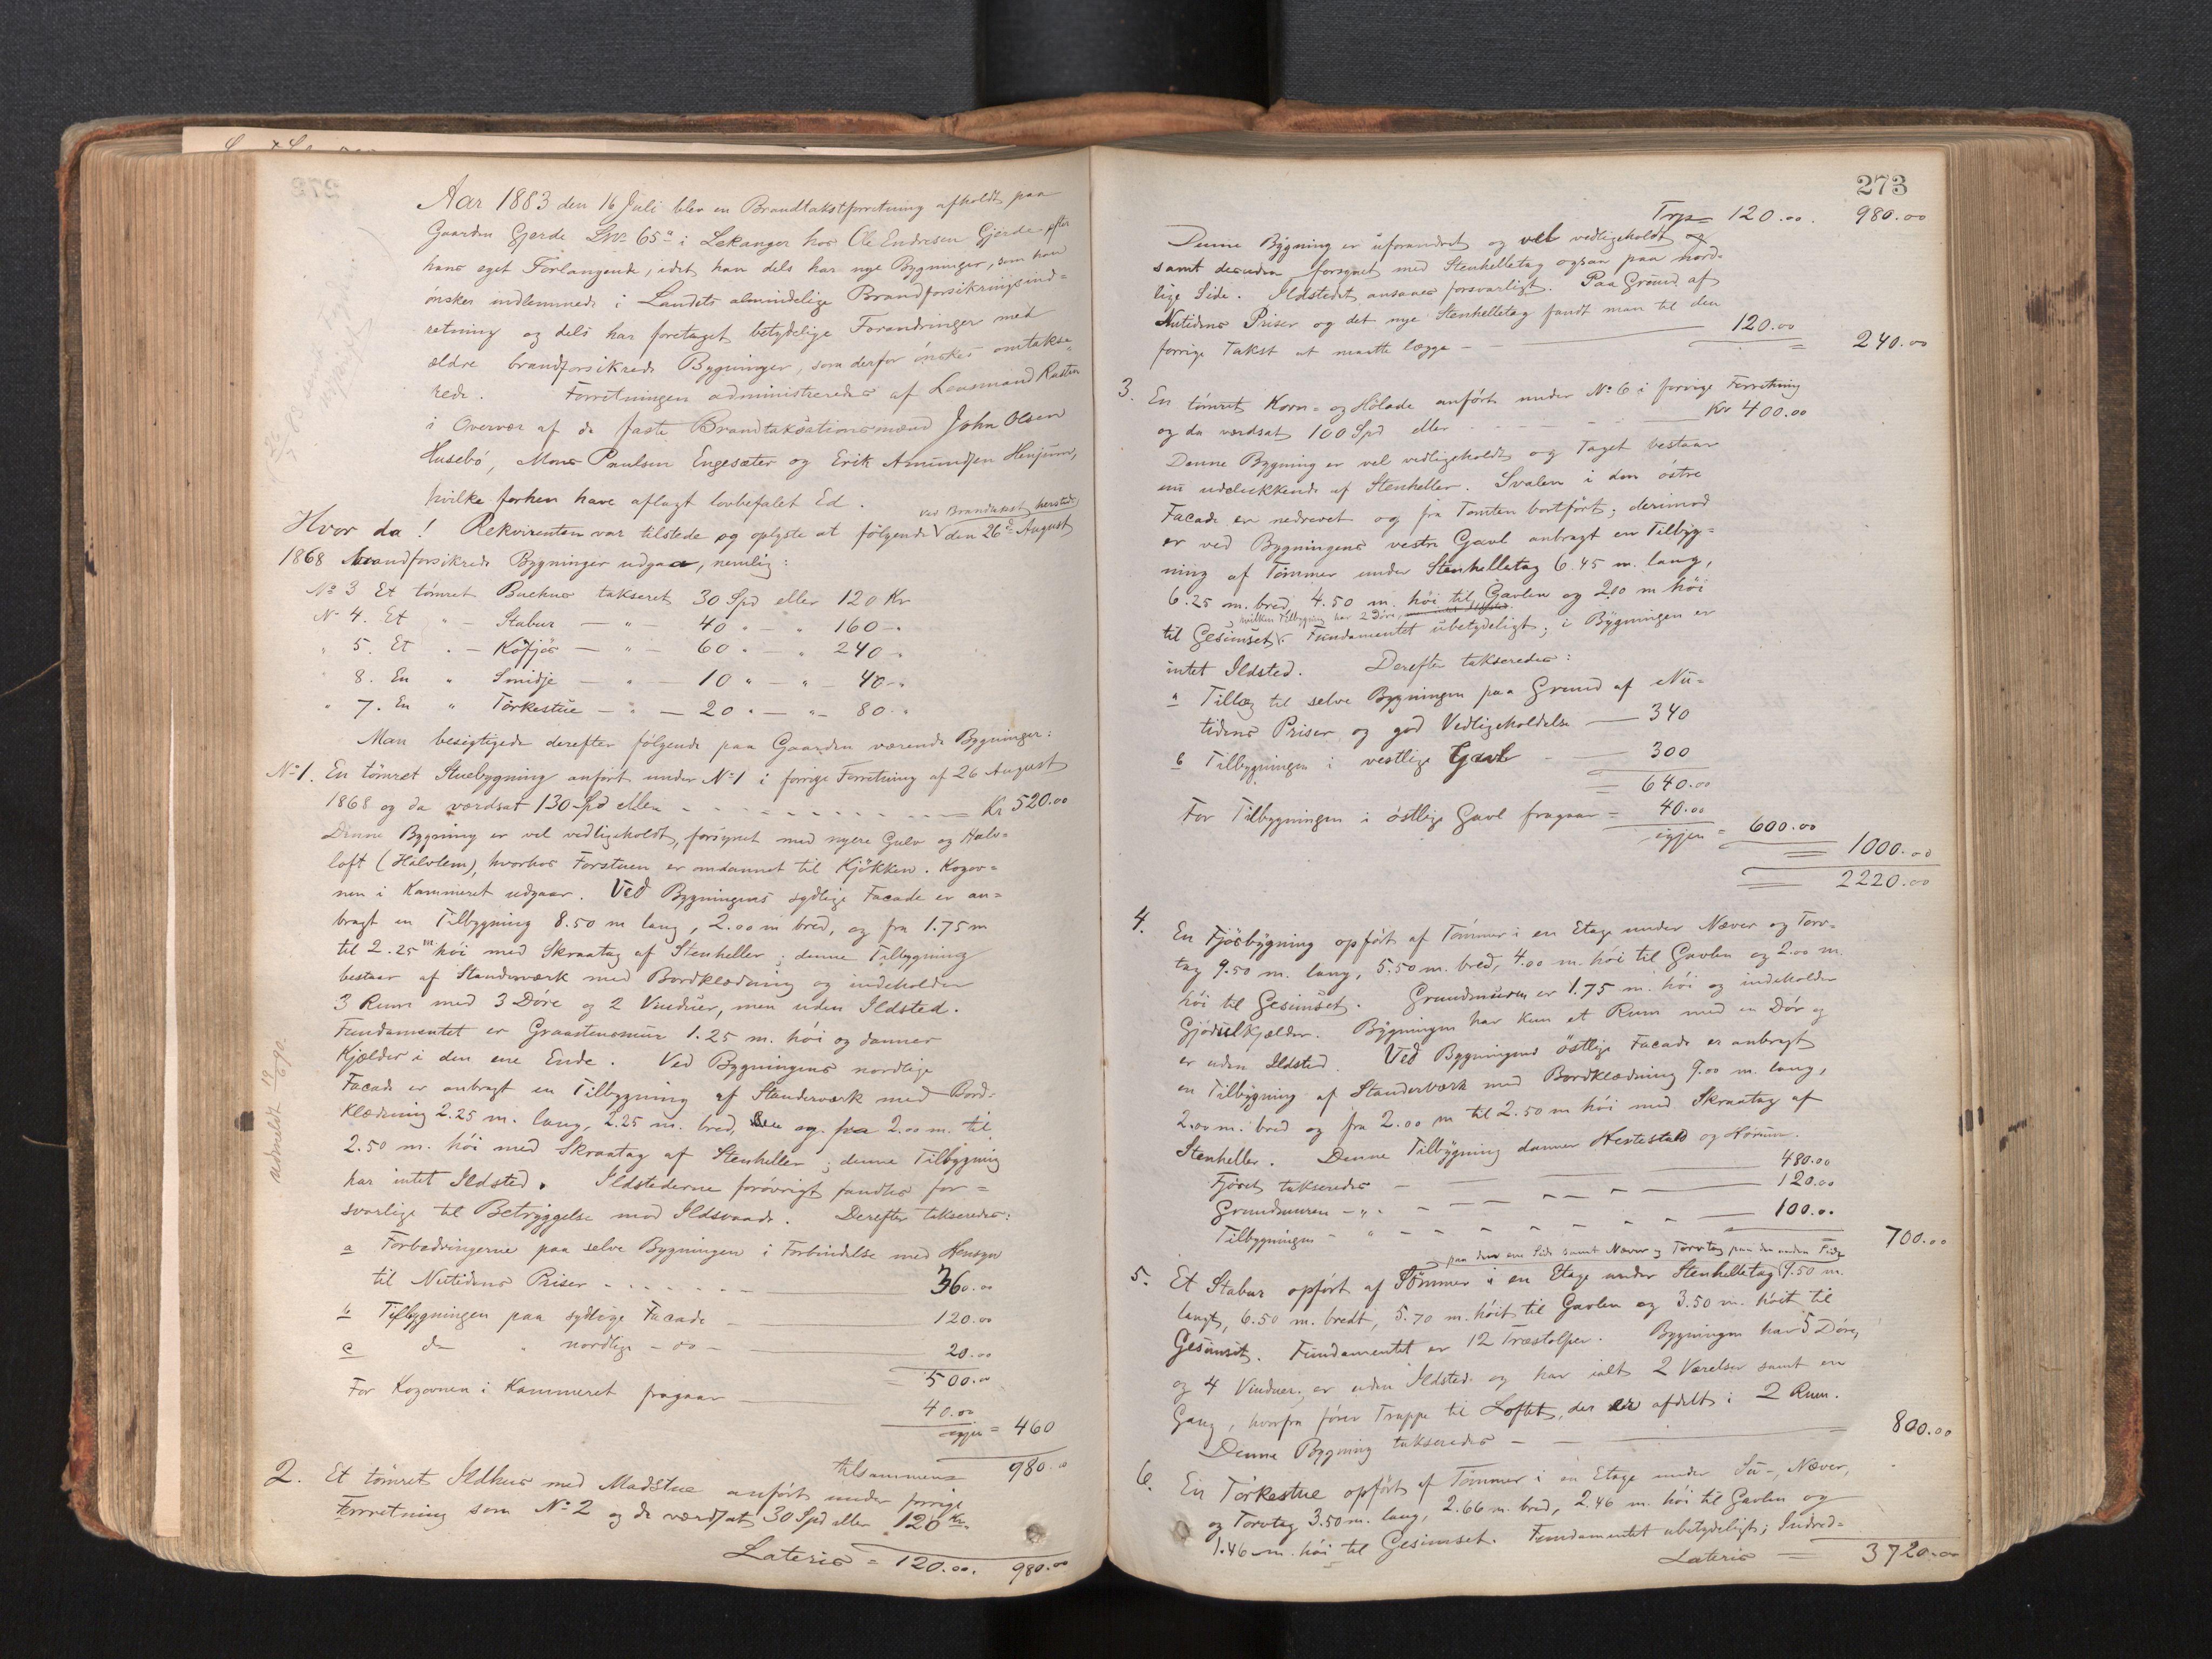 Aar 1883 den 16 Juli blev en Brandtakstforretning afholdt paa
Gaarden Gjerde LNo 65a i Lekanger hos Ole Endresen Gjerde efter
hans eget Forlangende, idet han dels har nye Bygninger, som han
ønsker indlemmede i Landets almindelige Brandforsikringsind=
retning og dels har foretaget betydelige Forandringer med
ældre brandforsikrede Bygninger, som derfor ønskes omtakse=
rede. Forretningen administreredes af Lensmand Kasten
i Overvær af de faste Brandtaksationsmænd John Olsen
Husebö, Mons Paulsen Engesæter og Erik Amundsen Henjum,
hvilke forhen have aflagt lovbefalet Ed.
Hvor da! Rekvirenten var tilstede og oplyste at fölgende ved Brandtakst herstede den 26de August
1868 brandforsikrede Bygninger udgaa, nemlig:
No 3 Et tömret Buehus takseret 30 Spd eller 120 Kr
No 4. Et " - Stabur - " - 40 " - " 160 -.
" 5. Et " - Köfjös - " - 60 " - " 240 -.
" 8. En " Smidje - " - 10 " - " - 40 -.
" 7. En " Törkestue - " - 20 " - " - 80 -.
Man besigtigede derefter fölgende paa Gaarden værende Bygninger:
No 1. En tömret Stuebygning anfört under No 1 i forrige Forretning af 26 August
1868 og da værdsat 130 Spd eller - - - - - - Kr 520.00
Denne Bygning er vel vedligeholdt, forsynet med nyere Gulv og Halv=
loft (Halvlem), hvorhos Forstuen er omdannet til Kjökken. Kogov=
nen i Kammeret udgaar. Ved Bygningens sydlige Facade er an=
bragt en Tilbygning 8.50 m lang, 2.00 m bred, og fra 1.75 m
til 2.25 m höi med Skraatag af Stenheller; denne Tilbygning
bestaar af Standerværk med Bordklædning og indeholder
3 Rum med 3 Döre og 2 Vinduer, men uden Ildsted.
Fundamentet er Graastensmur 1.25 m. höi og danner
Kjælder i den ene Ende. Ved Bygningens nordlige
Facade er anbragt en Tilbygning af Standerværk med Bord-
klædning 2.25 m. lang, 2.25 m. bred, og fra 2.00 m. til
2.50 m. höi med Skraatag af Stenheller; denne Tilbygning
har intet Ildsted. Ildstederne forövrigt fandtes for=
svarlige til Betryggelse mod Ildsvaade. Derefter takseredes:
a Forbedringerne paa selve Bygningen i Forbindelse med Hensyn
til Nutidens Priser - - - - - 360.00
b Tilbygningen paa sydlige Facade - 120.00
c do " nordlige - do - 20.00
= 500.00
For Kogovnen i Kammeret fragaar 40.00
igjen = 460
tilsammens 980.00
2. Et tömret Ildhus med Madstue anfört under forrige
Forretning som No 2 og da værdsat 30 Spd eller 120 Kr.
Lateris = 120.00. 980.00
anmeldt 19/6 90.
273
Trsp = 120.00. 980.00
Denne Bygning er uforandret og vel vedligeholdt
samt desuden forsynet med Stenhelletag ogsaa paa nord=
lige Side. Ildstedet ansaaes forsvarligt. Paa Grund af
Nutidens Priser og det nye Stenhelletag fandt man til den
forrige Takst at maatte lægge - - 120.00 = 240.00
3. En tömret Korn= og Hölade anfört under No 6 i forrige Forretning
og da værdsat 100 Spd eller - - - - Kr 400.00
Denne Bygning er vel vedligeholdt og Taget bestaar
nu udelukkende af Stenheller. Svalen i den östre
Facade er nedrevet og fra Tomten bortfört; derimod
er ved Bygningens vestre Gavl anbragt en Tilbyg=
ning af Tömmer under Stenhelletag 6.45 m. lang,
6.25 m. bred, 4.50 m. höi til Gavlen og 2.80 m höi
til Gesimset, hvilken Tilbygning har 2 Döre. Fundamentet ubetydeligt; i Bygningen er
intet Ildsted. Derefter takseredes:
a Tillæg til selve Bygningen paa Grund af Nu=
tidens Priser og god Vedligeholdelse - 340
b Tilbygningen i vestlige Gavl - 300
= 640.00
For Tilbygningen i östlige Gavl fragaar = 40.00
igjen = 600.00
= 1000.00
2220.00
4. En Fjösbygning opfört af Tömmer i en Etage under Næver og Torv=
tag 9.50 m. lang, 5.50 m. bred, 4.00 m. höi til Gavlen og 2.00 m.
höi til Gesimset. Grundmuren er 1.75 m. höi og indeholder
Gjödselkjælder. Bygningen har kun et Rum med en Dör og
er uden Ildsted. Ved Bygningens östlige Facade er anbragt
en Tilbygning af Standerværk med Bordklædning 9.00 m. lang,
2.00 m. bred og fra 2.00 m til 2.50 m höi med Skraatag af
Stenheller. Denne Tilbygning danner Hestestald og Hörum.
Fjöset takseredes - 480.00
Grundmuren - " - 120.00
Tilbygningen - " - 100.00
700.00
5. Et Stabur opfört af Tömmer i en Etage under Stenhelletag paa den ene Side samt Næver og Torvtag paa den anden Side 9.50 m.
langt, 6.50 m. bredt, 5.70 m. höit til Gavlen og 3.50 m. höit til
Gesimset. Fundamentet er 12 Træstolper. Bygningen har 5 Döre,
og 4 Vinduer, er uden Ildsted og har ialt 2 Værelser samt en
Gang, hvorfra förer Trappe til Loftet, der er afdelt i 2 Rum.
Denne Bygning takseredes - = 800.00
6. En Törkestue opfört af Tömmer i en Etage under Su-, Næver,
og Torvtag 3.50 m. lang, 2.66 m. bred, 2.46 m. höi til Gavlen og
1.46 m. höi til Gesimset. Fundamentet ubetydeligt; Indred=
Lateris = 3720.00